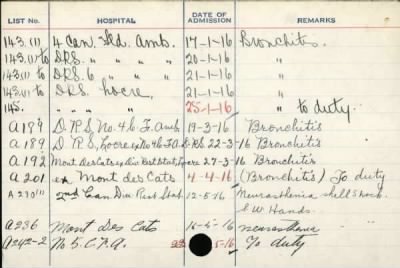 LIST No. HOSPITAL DATE OF ADMISSION REMARKS
143.(1) 4 Can. Fld. Amb. 17-1-16 Bronchitis.
143.(1) to D.R.S. " " " " 20-1-16 "
143.(1) to D.R.S. 6 " " " 21-1-16 "
143.(1) to D.R.S. Locre. 21-1-16 "
145. " " " " 25-1-16 " to duty.
A189 D.R.S. No. 46. F. Amb. 19-3-16 Bronchitis
A189 D.R.S. Locre ex No. 46. F.A. D.R.S. 22-3-16 Bronchitis
A192 Mont Des Cats ex Div. Rest Stat. Locre 27-3-16 Bronchitis
A201 ex Mont des Cats 4-4-16 (Bronchitis) To duty
A230 2nd Can Div Rest Stat. 12-5-16 Neurasthenia shell shock.
G.W. Hands.
A236 Mont Des Cats 16-5-16 neurasthenia
A242-2 No 5. C.F.A. 5-16 To duty